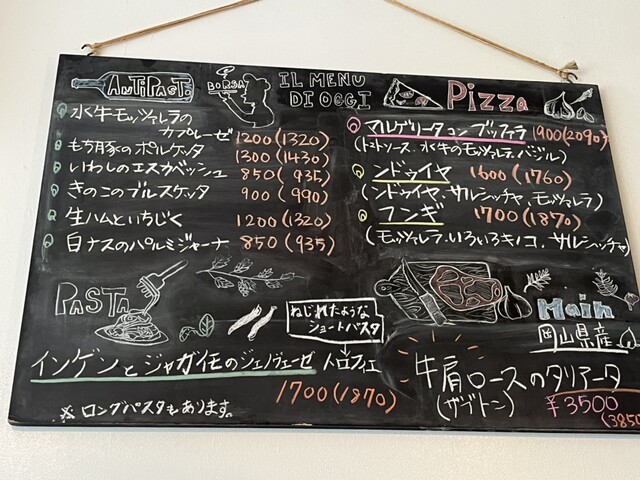 ANTIPAST.
BORSA
IL MENU
DI OGGI
Pizza
水牛モッツァレラの
カプレーゼ 1200(1320)
もち豚のポルケッタ 1300(1430)
いわしのエスカベッシュ 850(935)
きのこのブルスケッタ 900(990)
生ハムといちじく 1200(1320)
白ナスのパルミジャーナ 850(935)
マルゲリータコンブッファラ 1900(2090)
(トマトソース、水牛のモッツァレラ、バジル)
ンドゥイヤ 1600(1760)
(ンドゥイヤ、サルシッチャ、モッツァレラ)
フンギ 1700(1870)
(モッツァレラ、いろいろキノコ、サルシッチャ)
PASTA
ねじれたような
ショートパスタ
インゲンとジャガイモのジェノヴェーゼ トロフィエ
1700(1870)
※ロングパスタもあります。
Main
岡山県産
牛肩ロースのタリアータ
(ザブトン) ¥3500
(3850